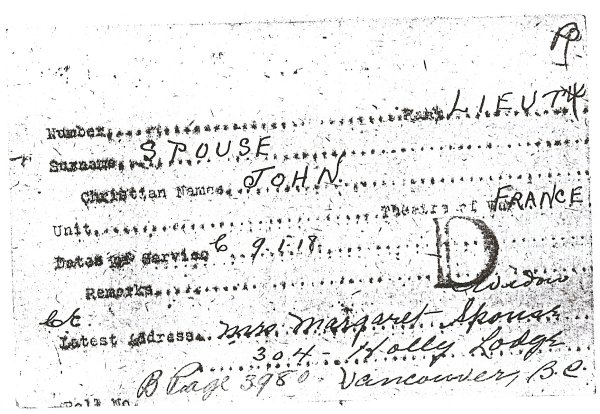 Number Rank LIEUT
Surname SPOUSE
Christian Names JOHN
Theatre of War FRANCE
Unit
Dates of Service C 9.1.18
D
Remarks
Widow
Latest Address. Mrs Margaret Spouse
304 - Holly Lodge
B Page 3980 Vancouver, B.C.
Roll No.